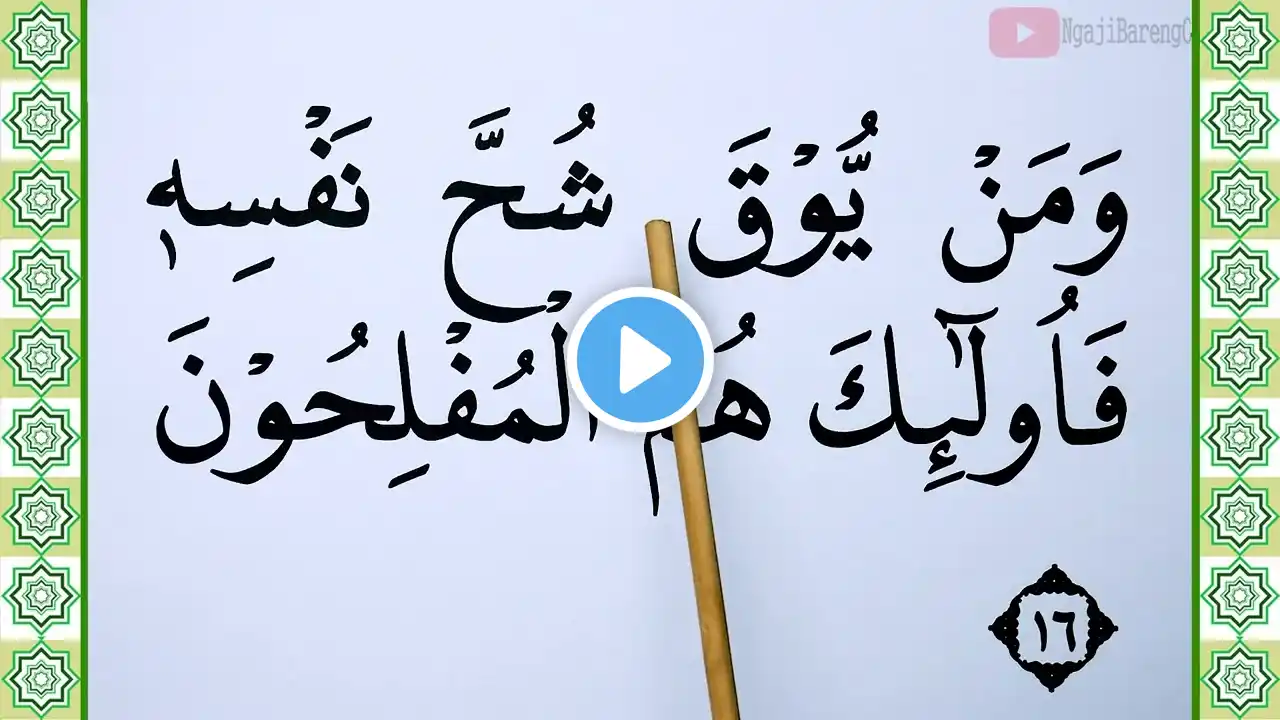 NgajiBarengC
وَمَنْ يُّوْقَ شُحَّ نَفْسِهٖ
فَاُولٰۤىِٕكَ هُمُ الْمُفْلِحُوْنَ
١٦